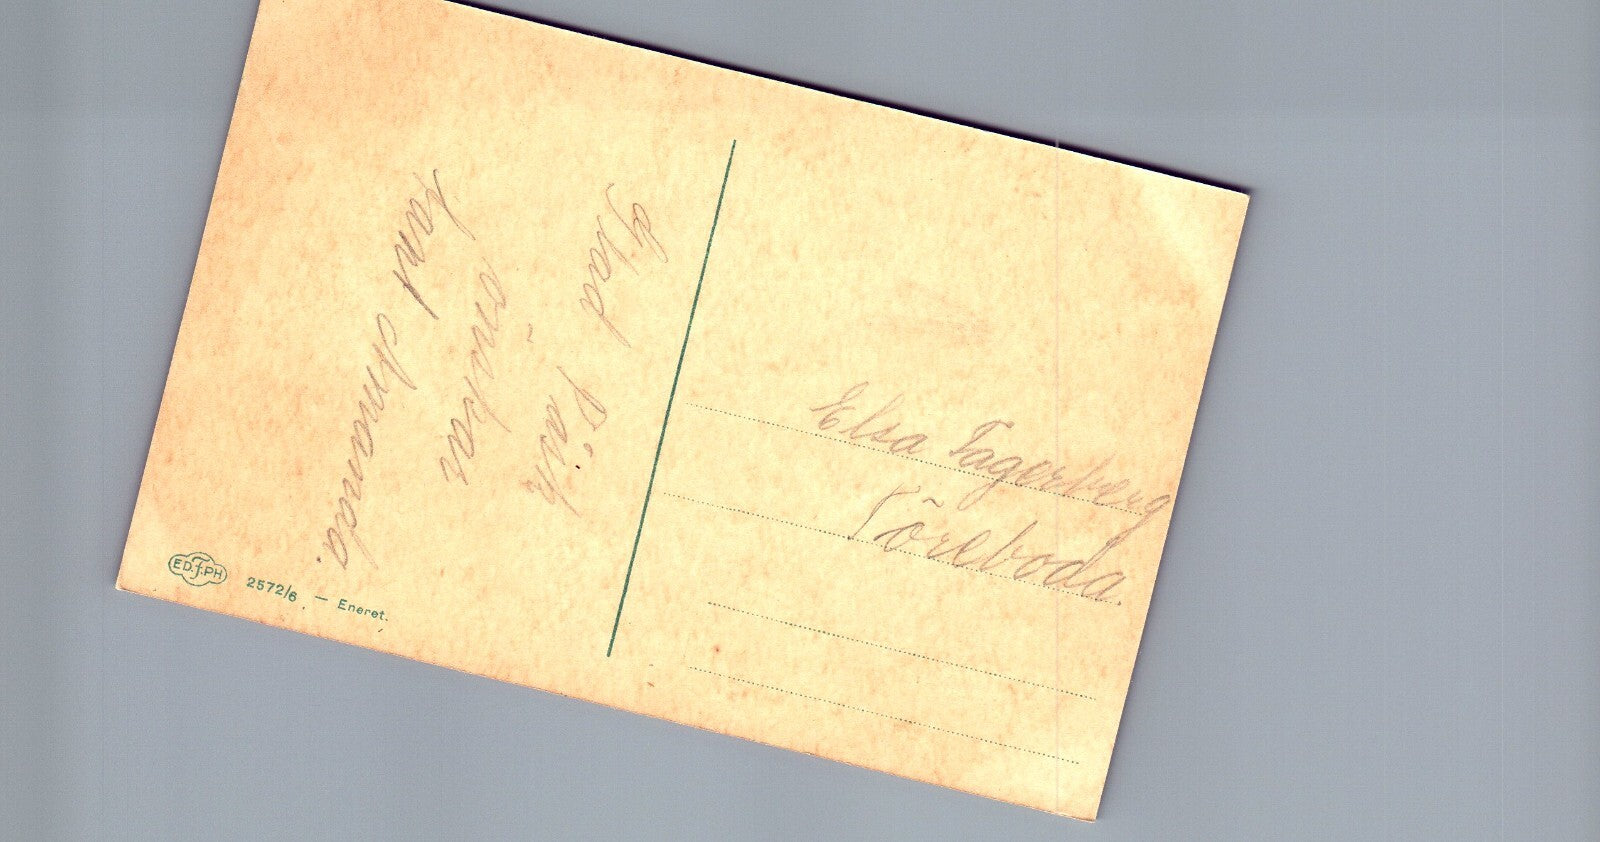 Glad Påsk
önskar
tant Amanda.
Elsa Fagerberg
Töreboda.
ED.f.PH 2572/6. — Eneret.